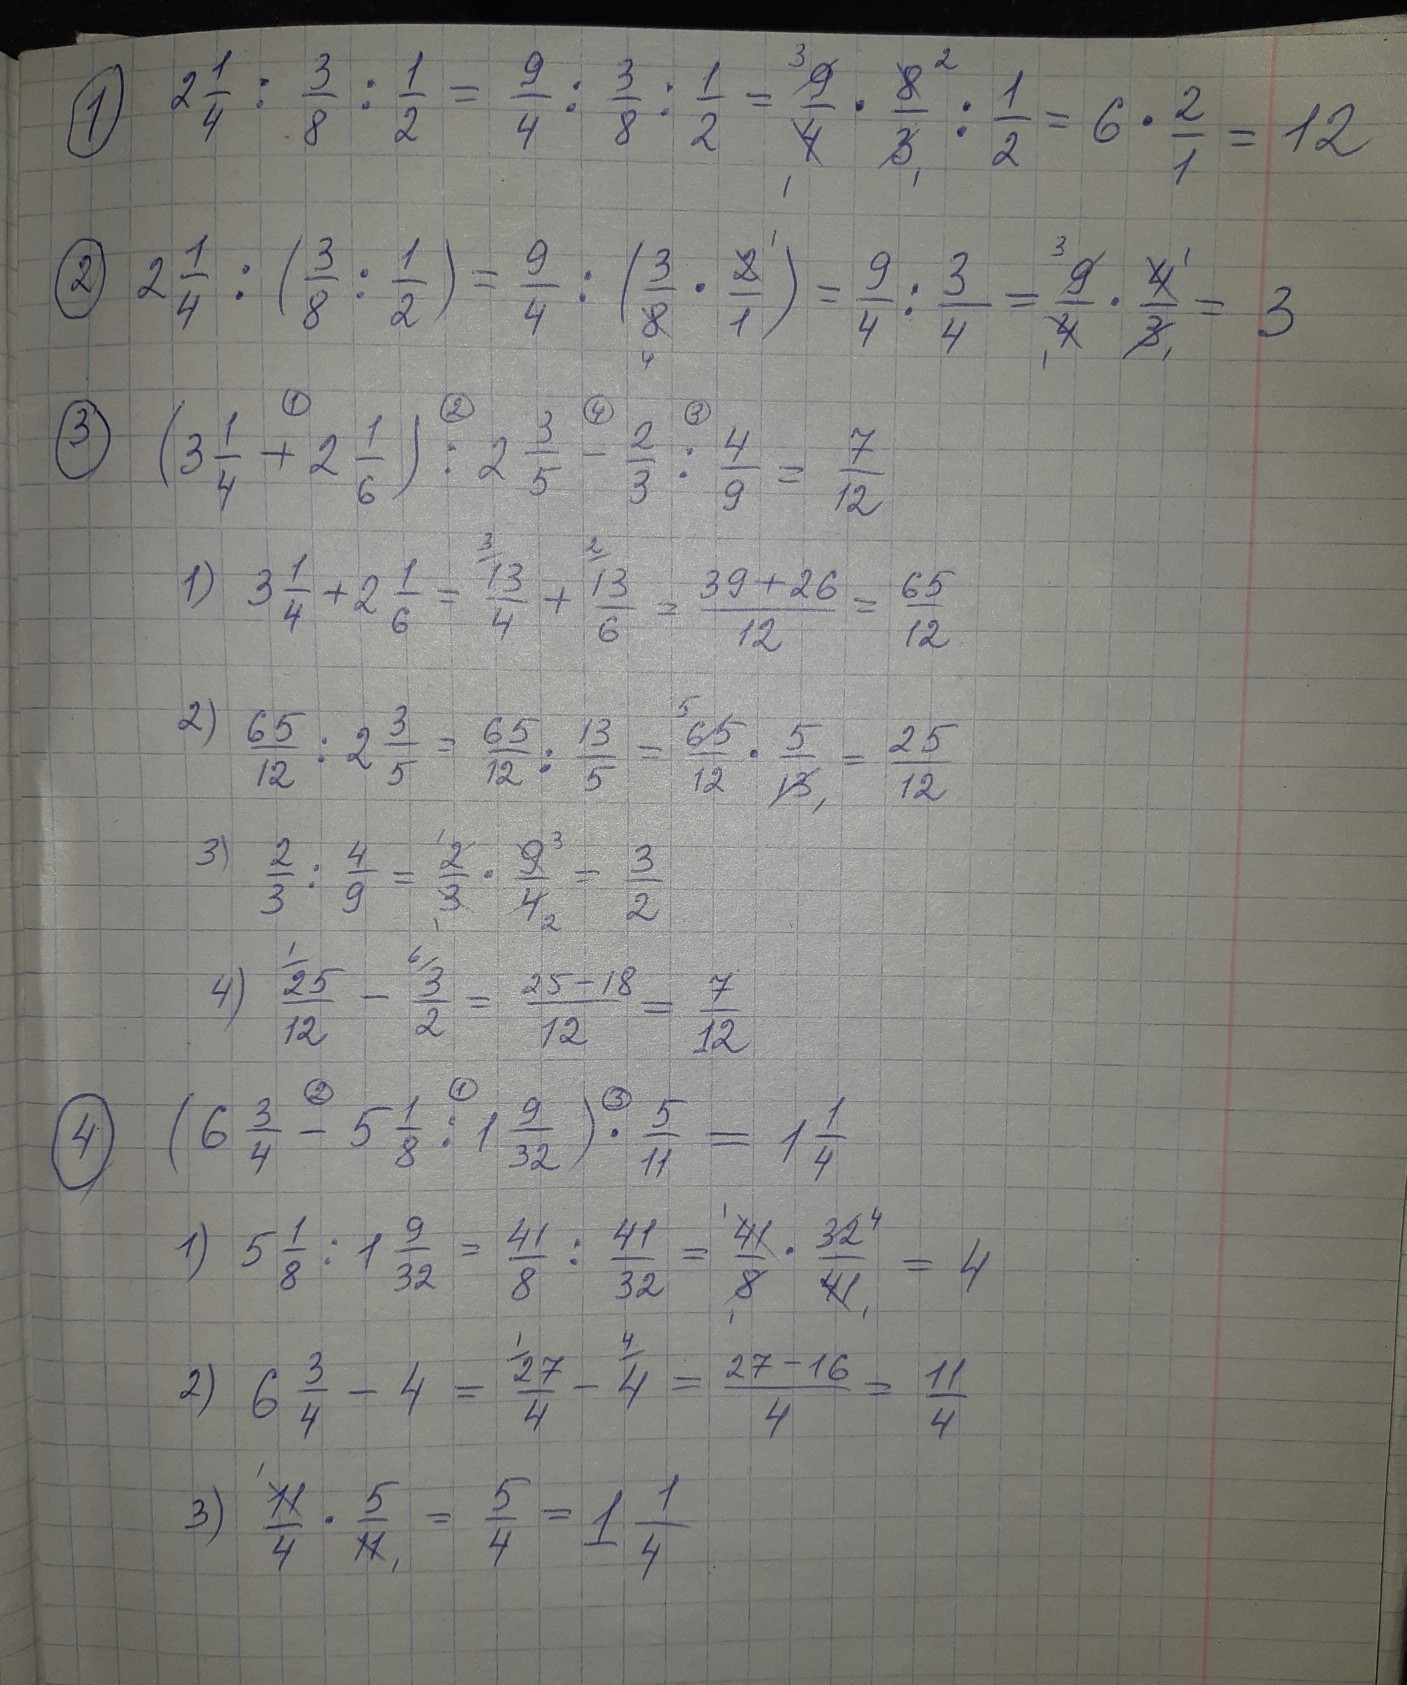 ① 2 1/4 : 3/8 : 1/2 = 9/4 : 3/8 : 1/2 = ³9/4₁ · 8²/3₁ : 1/2 = 6 · 2/1 = 12
② 2 1/4 : (3/8 : 1/2) = 9/4 : (3/8₄ · 2¹/1) = 9/4 : 3/4 = ³9/4₁ · 4¹/3₁ = 3
③ (3 1/4 +① 2 1/6) :② 2 3/5 -④ 2/3 :③ 4/9 = 7/12
1) 3 1/4 + 2 1/6 = ³13/4 + ²13/6 = (39+26)/12 = 65/12
2) 65/12 : 2 3/5 = 65/12 : 13/5 = ⁵65/12 · 5/13₁ = 25/12
3) 2/3 : 4/9 = ¹2/3₁ · 9³/4₂ = 3/2
4) ¹25/12 - ⁶3/2 = (25-18)/12 = 7/12
④ (6 3/4 -② 5 1/8 :① 1 9/32) ·③ 5/11 = 1 1/4
1) 5 1/8 : 1 9/32 = 41/8 : 41/32 = ¹41/8₁ · 32⁴/41₁ = 4
2) 6 3/4 - 4 = ¹27/4 - ⁴4 = (27-16)/4 = 11/4
3) ¹11/4 · 5/11₁ = 5/4 = 1 1/4